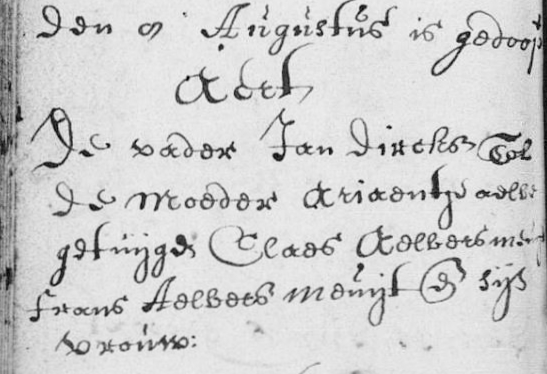 den 9 Augustus is gedoop
Aert
De vader Jan dircks Tol
de moeder Ariaentje aelb
getuijges Claes Aelbers me
frans Aelbers meuijt en sijn
vrouw: